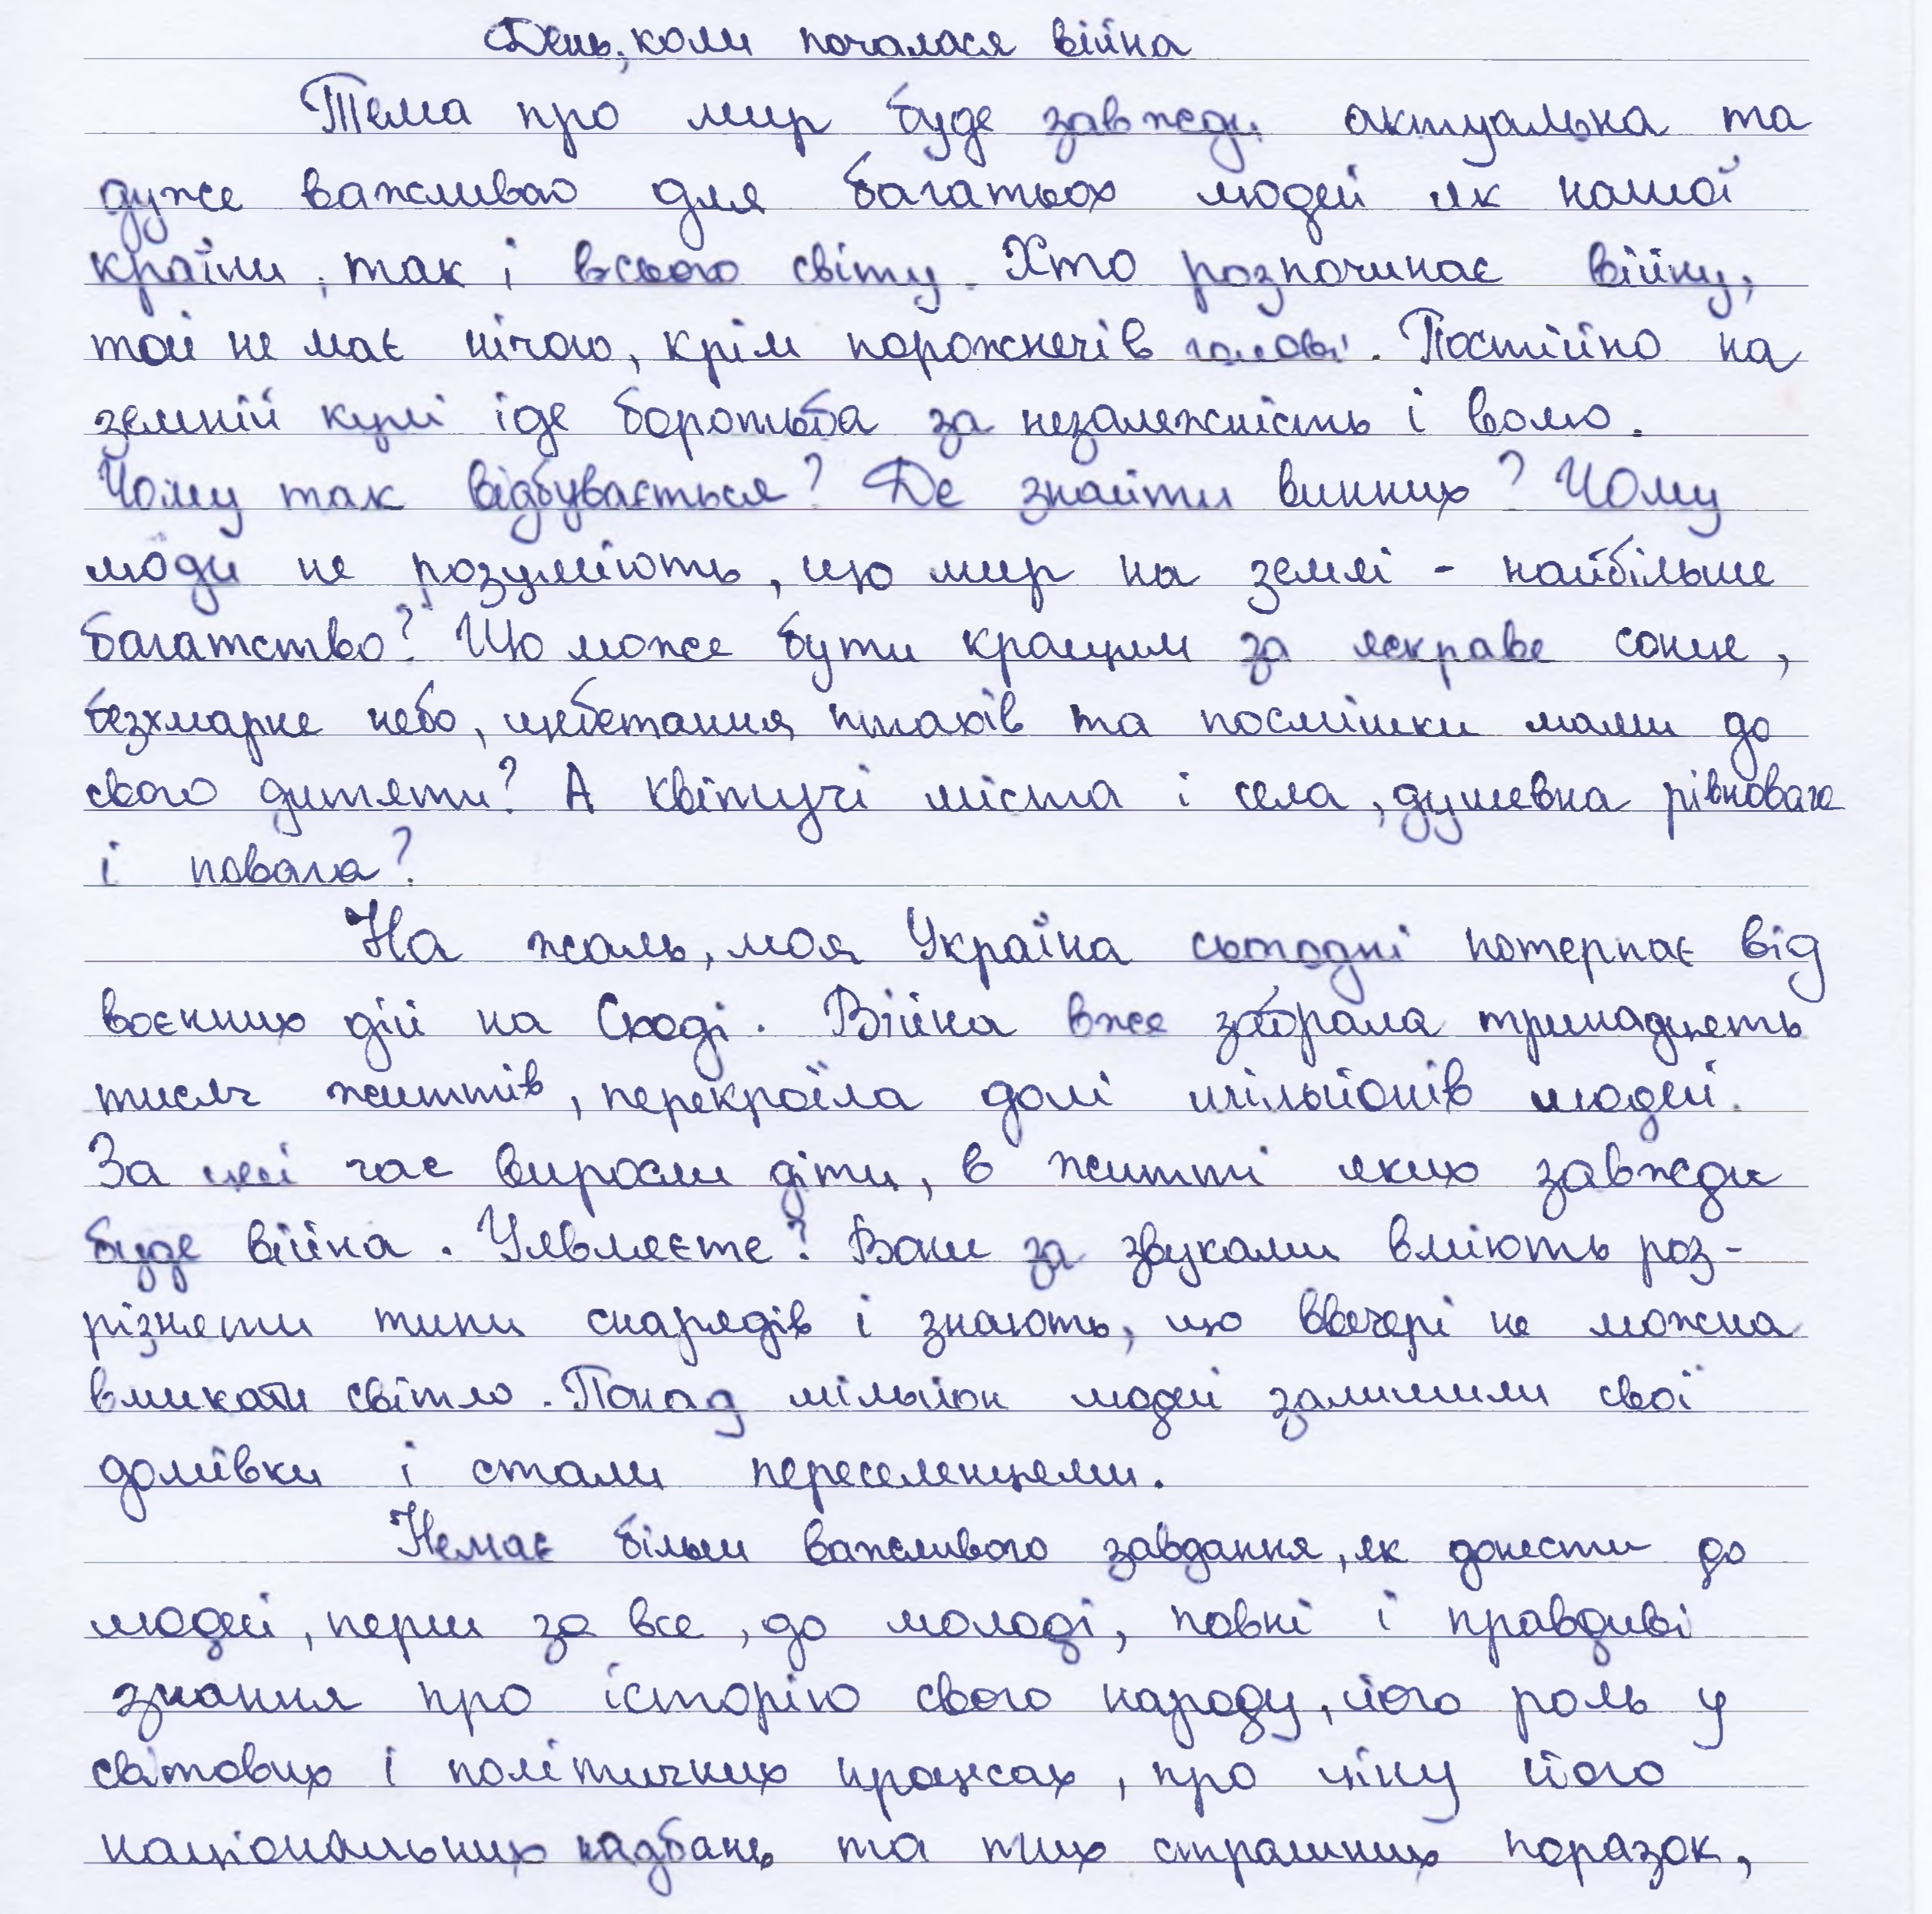 День, коли почалася війна
Тема про мир буде завжди актуальна та
дуже важливою для багатьох людей як нашої
країни, так і всього світу. Хто розпочинає війну,
той не має нічого, крім порожнечі в голові. Постійно на
земній кулі іде боротьба за незалежність і волю.
Чому так відбувається? Де знайти винних? Чому
люди не розуміють, що мир на землі - найбільше
багатство? Що може бути кращим за яскраве сонце,
безхмарне небо, щебетання птахів та посмішки мами до
свого дитяти? А квітучі міста і села, душевна рівновага
і повага?
На жаль, моя Україна сьогодні потерпає від
воєнних дій на Сході. Війна вже забрала тринадцять
тисяч життів, перекроїла долі мільйонів людей.
За цей час виросли діти, в житті яких завжди
буде війна. Уявляєте? Вони за звуками вміють роз-
різняти типи снарядів і знають, що ввечері не можна
вмикати світло. Понад мільйон людей залишили свої
домівки і стали переселенцями.
Немає більш важливого завдання, як донести до
людей, перш за все, до молоді, повні і правдиві
знання про історію свого народу, його роль у
світових і політичних процесах, про ціну його
національних надбань та тих страшних поразок,